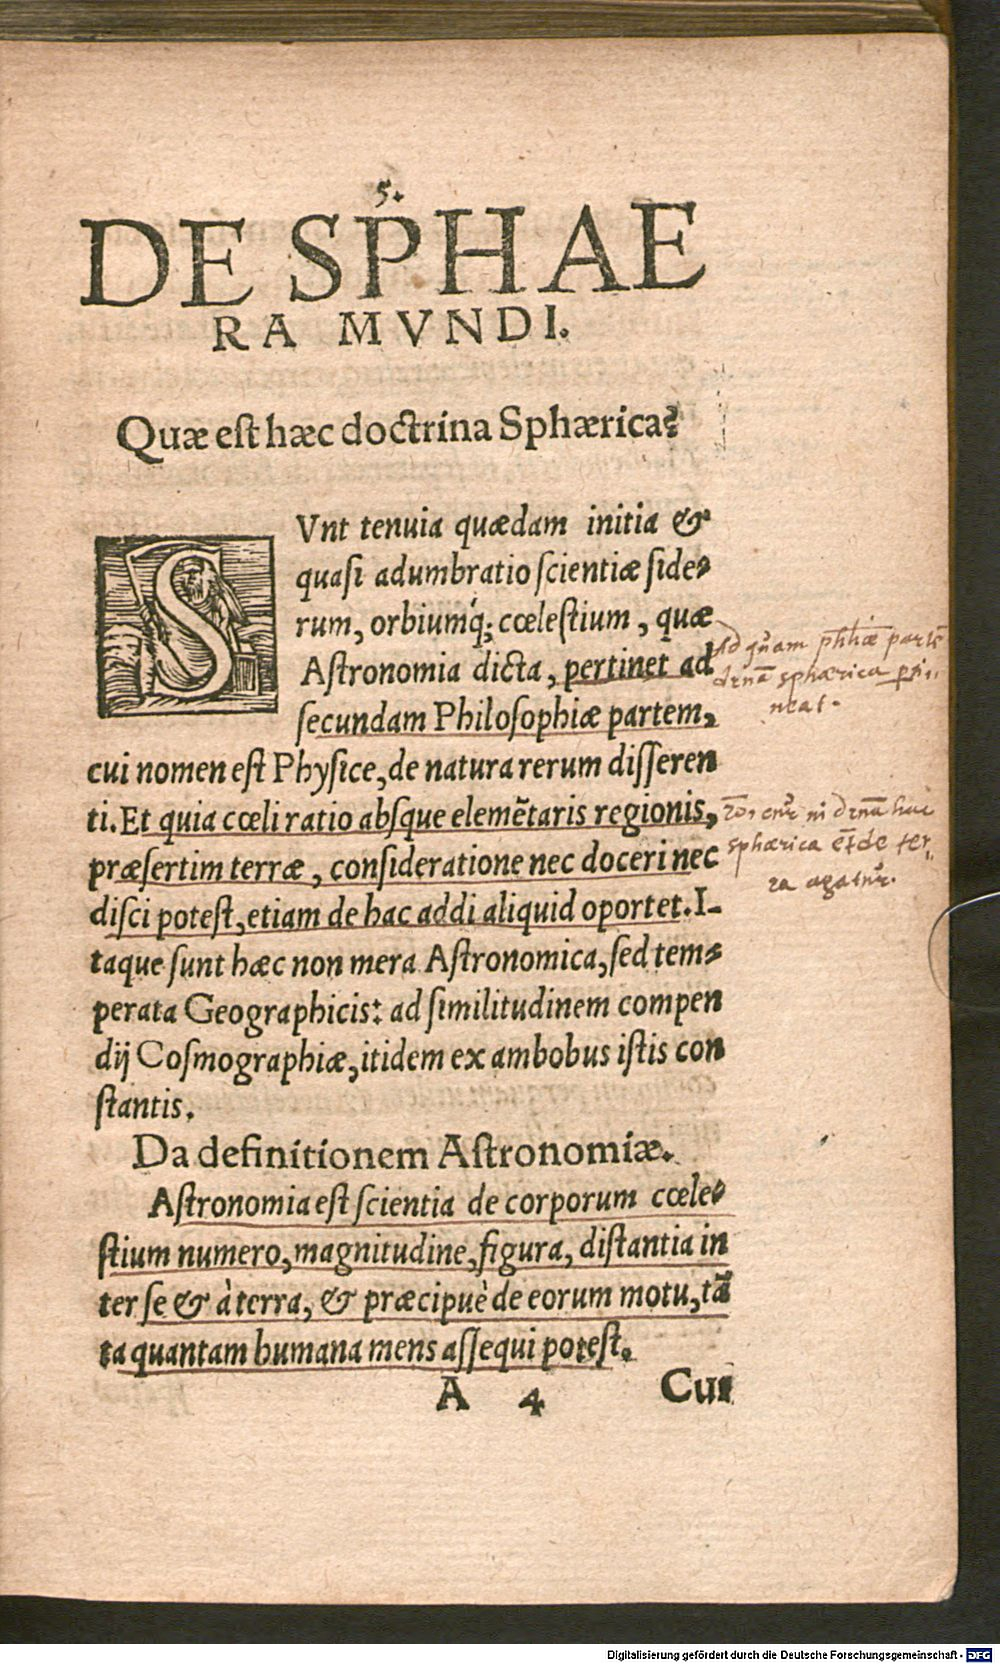 5.
DE SPHAE
RA MVNDI.
Quæ est hæc doctrina Sphærica?
SVnt tenuia quædam initia &
quasi adumbratio scientiæ side⸗
rum, orbiumq́; cœlestium, quæ
Astronomia dicta, pertinet ad
secundam Philosophiæ partem,
cui nomen est Physice, de natura rerum disseren
ti. Et quia cœli ratio absque elemẽtaris regionis,
præsertim terræ, consideratione nec doceri nec
disci potest, etiam de hac addi aliquid oportet. I-
taque sunt hæc non mera Astronomica, sed tem⸗
perata Geographicis: ad similitudinem compen
dij Cosmographiæ, itidem ex ambobus istis con
stantis.
Da definitionem Astronomiæ.
Astronomia est scientia de corporum cœle⸗
stium numero, magnitudine, figura, distantia in
ter se & à terra, & præcipuè de eorum motu, tā
ta quantam humana mens assequi potest.
A 4 Cui
Ad quam phliæ partē
drna sphærica
neat.
hac
sphærica et de ter
ra agatur.
Digitalisierung gefördert durch die Deutsche Forschungsgemeinschaft - DFG